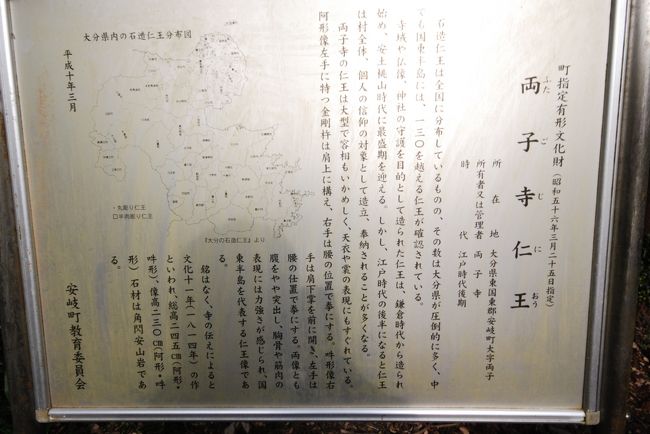 町指定有形文化財（昭和五十六年三月二十五日指定）
両子寺仁王
ふたごじにおう
所在地 大分県東国東郡安岐町大字両子
所有者又は管理者 両子寺
時代 江戸時代後期
石造仁王は全国に分布しているものの、その数は大分県が圧倒的に多く、中
でも国東半島には、一三〇を越える仁王が確認されている。
寺域や仏像、神社の守護を目的として造られた仁王は、鎌倉時代から造られ
始め、安土桃山時代に最盛期を迎える。しかし、江戸時代の後半になると仁王
は村全体、個人の信仰の対象として造立、奉納されることが多くなる。
両子寺の仁王は大型で容相もいかめしく、天衣や裳の表現にもすぐれている。
阿形像左手に持つ金剛杵は肩上に構え、右手は腰の位置で拳にする。吽形像右
手は肩下掌を前に開き、左手は
腰の仕置で拳にする。両像とも
腹をやや突出し、胸骨や筋肉の
表現には力強さが感じられ、国
東半島を代表する仁王像であ
る。
銘はなく、寺の伝えによると
文化十一年（一八一四年）の作
といわれ、総高二四五㎝（阿形・
吽形）、像高二三〇㎝（阿形・吽
形）石材は角閃安山岩であ
る。
大分県内の石造仁王分布図
・丸彫り仁王
□半肉彫り仁王
『大分の石造仁王』より
平成十年三月
安岐町教育委員会